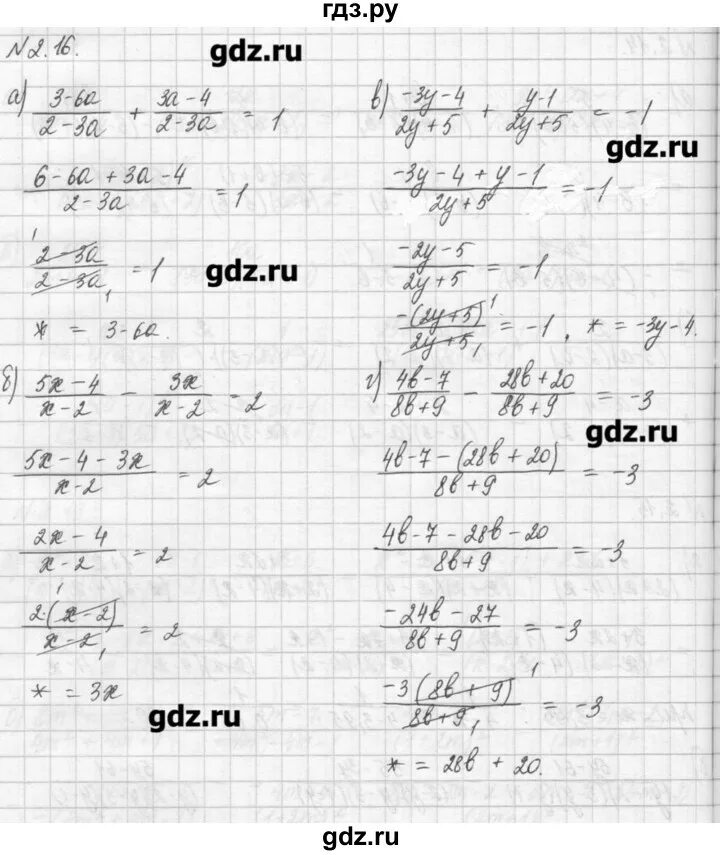 гдз.ру
№2.16.
gdz.ru
а) (3-6a)/(2-3a) + (3a-4)/(2-3a) = 1
(6-6a+3a-4)/(2-3a) = 1
(2-3a)/(2-3a) = 1
gdz.ru
* = 3-6a.
б) (5x-4)/(x-2) - 3x/(x-2) = 2
(5x-4-3x)/(x-2) = 2
(2x-4)/(x-2) = 2
2·(x-2)/(x-2) = 2
* = 3x
gdz.ru
в) (-3y-4)/(2y+5) + (y-1)/(2y+5) = -1
gdz.ru
(-3y-4+y-1)/(2y+5) = -1
(-2y-5)/(2y+5) = -1
-(2y+5)/(2y+5) = -1, * = -3y-4.
г) (4b-7)/(8b+9) - (28b+20)/(8b+9) = -3
gdz.ru
(4b-7-(28b+20))/(8b+9) = -3
(4b-7-28b-20)/(8b+9) = -3
(-24b-27)/(8b+9) = -3
-3(8b+9)/(8b+9) = -3
* = 28b + 20.
gdz.ru